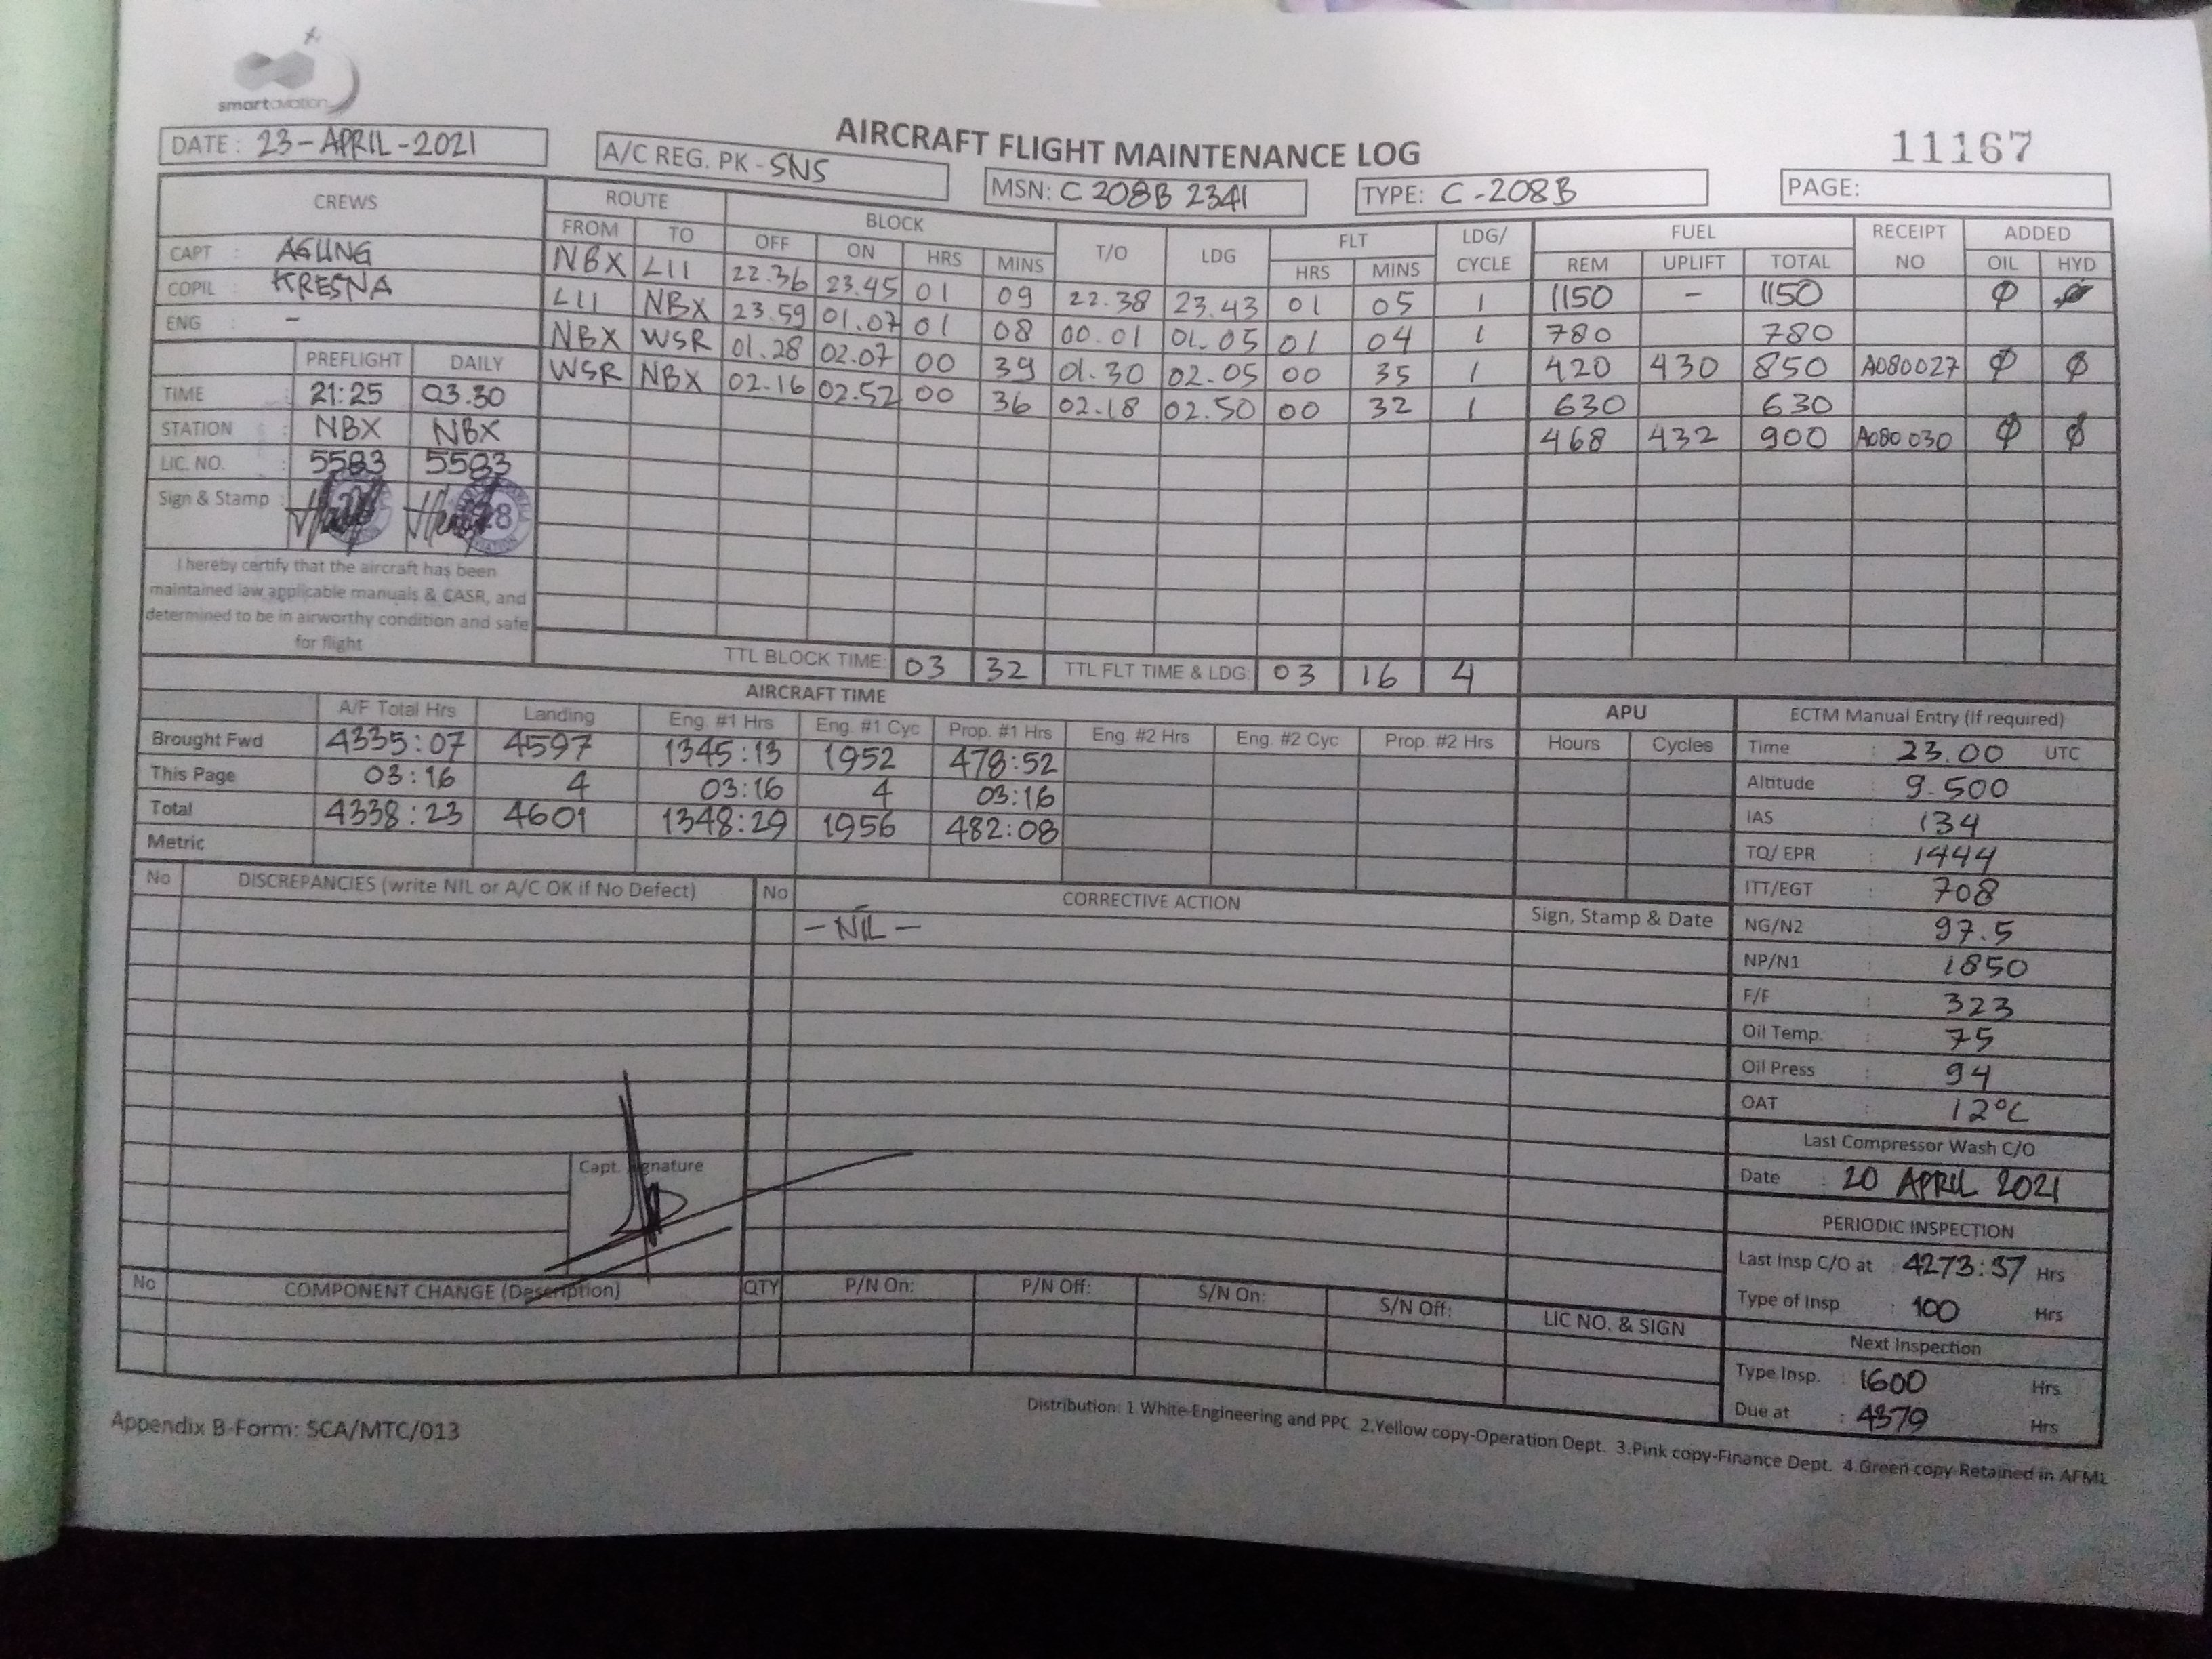 smartaviation
AIRCRAFT FLIGHT MAINTENANCE LOG
11167
DATE: 23-APRIL-2021
A/C REG. PK-SNS
MSN: C 208B 2341
TYPE: C-208B
PAGE:
CREWS
CAPT : AGUNG
COPIL : KRESNA
ENG : -
PREFLIGHT DAILY
TIME : 21:25 03.30
STATION : NBX NBX
LIC. NO. : 5583 5583
Sign & Stamp :
28
I hereby certify that the aircraft has been
maintained iaw applicable manuals & CASR, and
determined to be in airworthy condition and safe
for flight
ROUTE BLOCK T/O LDG FLT LDG/ CYCLE FUEL RECEIPT NO ADDED
FROM TO OFF ON HRS MINS HRS MINS REM UPLIFT TOTAL OIL HYD
NBX LII 22.36 23.45 01 09 22.38 23.43 01 05 1 1150 - 1150 Ø Ø
LII NBX 23.59 01.07 01 08 00.01 01.05 01 04 1 780 780
NBX WSR 01.28 02.07 00 39 01.30 02.05 00 35 1 420 430 850 A080027 Ø Ø
WSR NBX 02.16 02.52 00 36 02.18 02.50 00 32 1 630 630
468 432 900 A080030 Ø Ø
TTL BLOCK TIME: 03 32 TTL FLT TIME & LDG: 03 16 4
AIRCRAFT TIME
A/F Total Hrs Landing Eng. #1 Hrs Eng. #1 Cyc Prop. #1 Hrs Eng. #2 Hrs Eng. #2 Cyc Prop. #2 Hrs
Brought Fwd 4335:07 4597 1345:13 1952 478:52
This Page 03:16 4 03:16 4 03:16
Total 4338:23 4601 1348:29 1956 482:08
Metric
APU
Hours Cycles
ECTM Manual Entry (If required)
Time : 23.00 UTC
Altitude : 9.500
IAS : 134
TQ/ EPR : 1444
ITT/EGT : 708
NG/N2 : 97.5
NP/N1 : 1850
F/F : 323
Oil Temp. : 75
Oil Press : 94
OAT : 12°C
Last Compressor Wash C/O
Date : 20 APRIL 2021
PERIODIC INSPECTION
Last Insp C/O at : 4273:37 Hrs
Type of Insp : 100 Hrs
Next Inspection
Type Insp. : 1600 Hrs
Due at : 4379 Hrs
No DISCREPANCIES (write NIL or A/C OK if No Defect) No CORRECTIVE ACTION Sign, Stamp & Date
- NIL -
Capt. Signature
No COMPONENT CHANGE (Description) QTY P/N On: P/N Off: S/N On: S/N Off: LIC NO. & SIGN
Appendix B-Form: SCA/MTC/013
Distribution: 1.White-Engineering and PPC 2.Yellow copy-Operation Dept. 3.Pink copy-Finance Dept. 4.Green copy-Retained in AFML